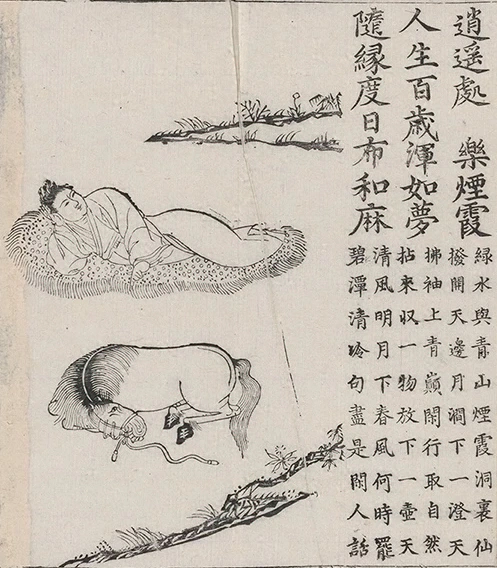 逍遥處　樂煙霞
人生百歲渾如夢
隨緣度日布和麻
緑水與青山煙霞洞裏仙
撥開天邊月澗下一澄天
拂袖上青巔閑行取自然
拈來収一物放下一壺天
清風明月下春風何時罷
碧潭清冷句盡是閑人話